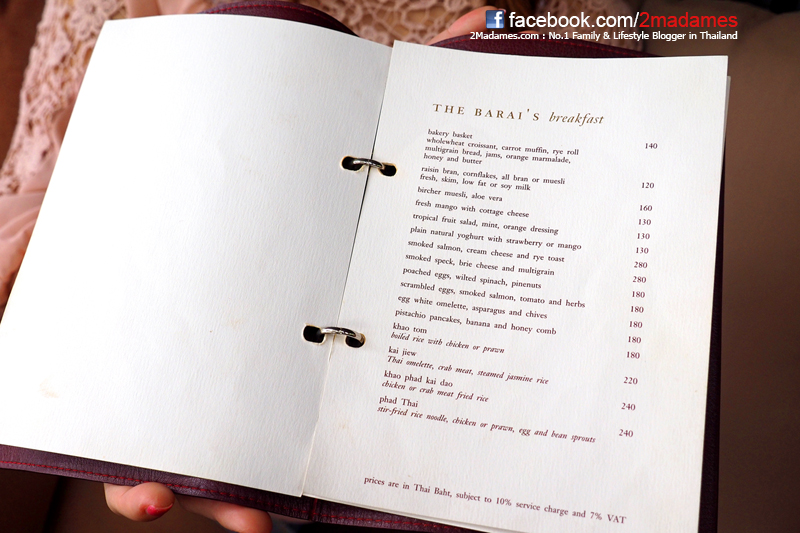 facebook.com/2madames
2Madames.com : No.1 Family & Lifestyle Blogger in Thailand
THE BARAI'S breakfast
bakery basket
wholewheat croissant, carrot muffin, rye roll 140
multigrain bread, jams, orange marmalade,
honey and butter
raisin bran, cornflakes, all bran or muesli
fresh, skim, low fat or soy milk 120
bircher muesli, aloe vera 160
fresh mango with cottage cheese 130
tropical fruit salad, mint, orange dressing 130
plain natural yoghurt with strawberry or mango 130
smoked salmon, cream cheese and rye toast 280
smoked speck, brie cheese and multigrain 280
poached eggs, wilted spinach, pinenuts 180
scrambled eggs, smoked salmon, tomato and herbs 180
egg white omelette, asparagus and chives 180
pistachio pancakes, banana and honey comb 180
khao tom
boiled rice with chicken or prawn 180
kai jiew
Thai omelette, crab meat, steamed jasmine rice 220
khao phad kai dao
chicken or crab meat fried rice 240
phad Thai
stir-fried rice noodle, chicken or prawn, egg and bean sprouts 240
prices are in Thai Baht, subject to 10% service charge and 7% VAT